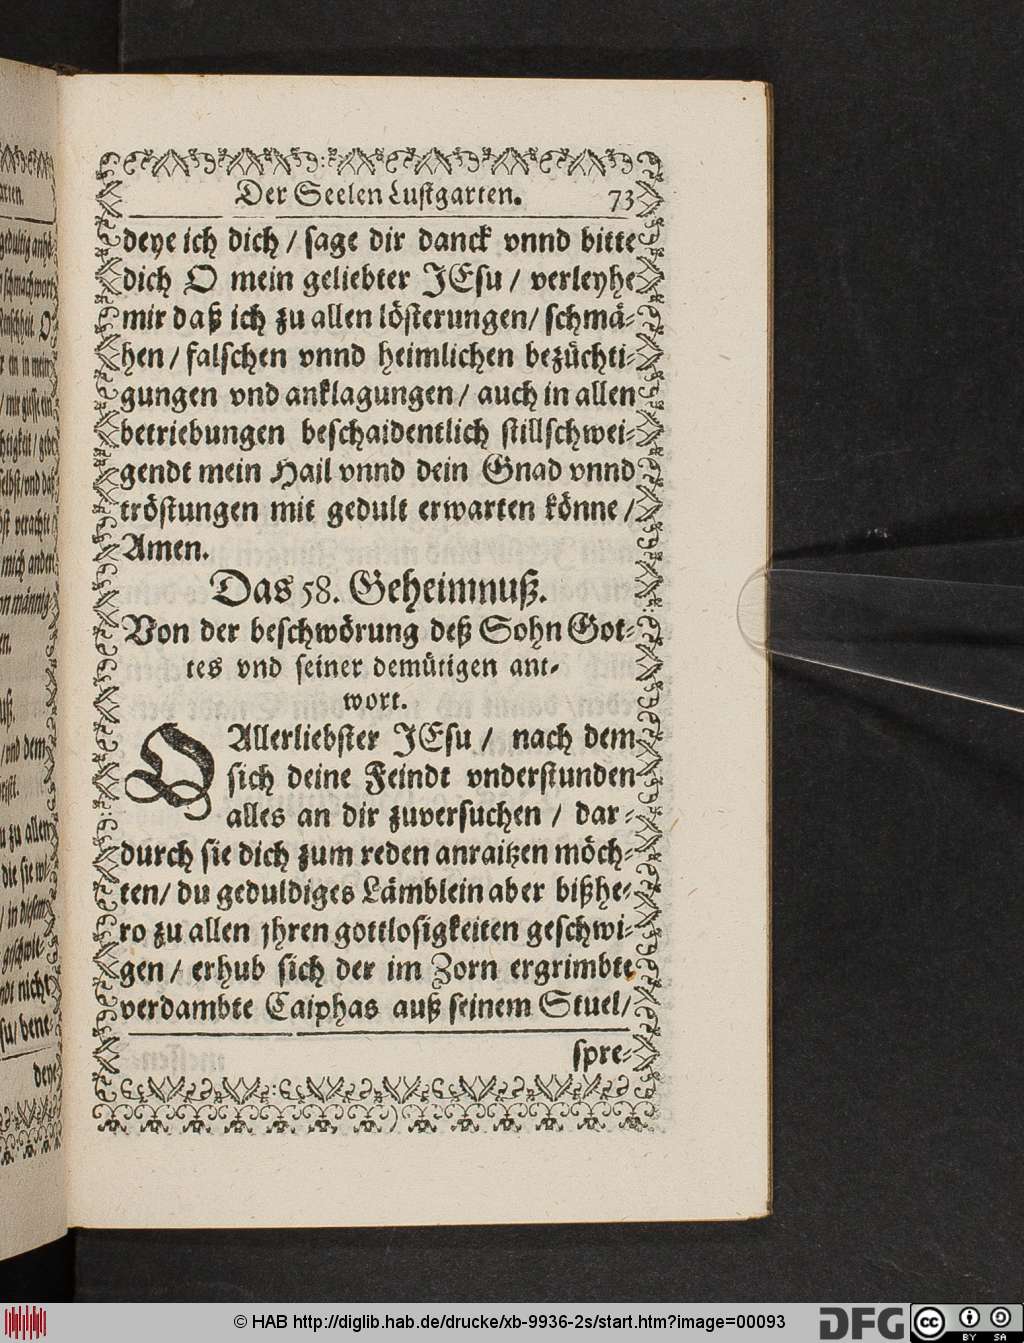 Der Seelen Lustgarten. 73
deye ich dich / sage dir danck vnnd bitte
dich O mein geliebter JEsu / verleyhe
mir daß ich zu allen lösterungen / schmä-
hen / falschen vnnd heimlichen bezüchti-
gungen vnd anklagungen / auch in allen
betriebungen beschaidentlich stillschwei-
gendt mein Hail vnnd dein Gnad vnnd
tröstungen mit gedult erwarten könne /
Amen.
Das 58. Geheimnuß.
Von der beschwörung deß Sohn Got-
tes vnd seiner demütigen ant-
wort.
O Allerliebster JEsu / nach dem
sich deine Feindt vnderstunden
alles an dir zuversuchen / dar-
durch sie dich zum reden anraitzen möch-
ten / du geduldiges Lämblein aber bißhe-
ro zu allen jhren gottlosigkeiten geschwi-
gen / erhub sich der im Zorn ergrimbte
verdambte Caiphas auß seinem Stuel /
spre-
© HAB http://diglib.hab.de/drucke/xb-9936-2s/start.htm?image=00093
DFG
cc BY SA